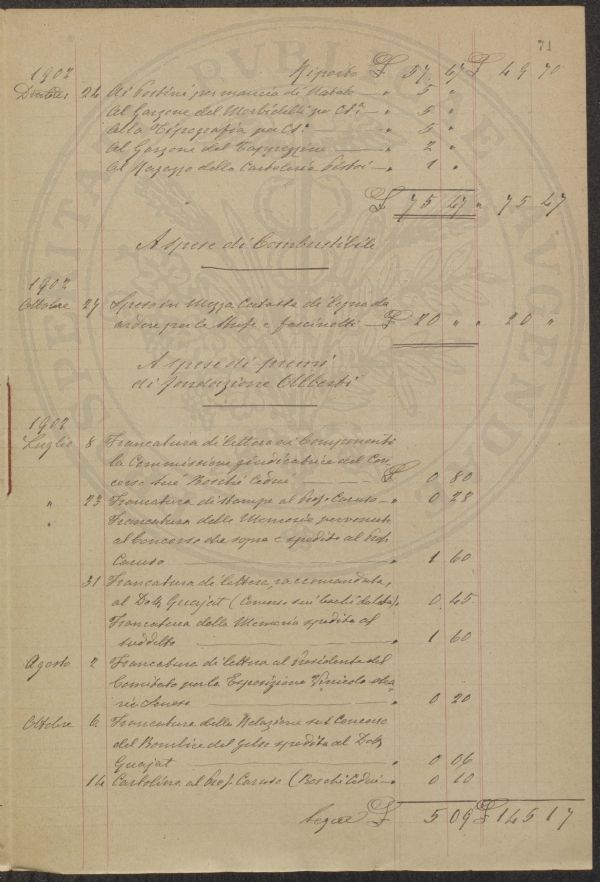 71
1902 Riporto £ 57 47 £ 69 70
Dicembre 24 Ai Postini per mancia di Natale — " 5 "
Al Garzone del Morbidelli per Cs.ª — " 5 "
Alla Tipografia per Cs.ª — " 5 "
Al Garzone del Tappezziere — " 2 "
Al Ragazzo della Cartoleria Pistoi — " 1 "
£ 75 47 " 75 47
A spese di Combustibile
1902
Ottobre 29 Spesa in Mezza Catasta di legna da
ardere per le Stufe e fascinotti — £ 20 " " 20 "
A spese di premi
di fondazione Alberti
1902
Luglio 8 Francatura di lettera ai Componenti
la Commissione giudicatrice del Con
corso sui Boschi Cedui — £ 0 80
" 23 Francatura di stampe al Prof. Caruso — " 0 28
" Francatura delle Memorie pervenute
al Concorso di che sopra e spedite al Prof.
Caruso — " 1 60
31 Francatura di lettera, raccomandata,
al Dott. Quajat (Concorso sui bachi da seta) " 0 45
Francatura della Memoria spedita al
suddetto — " 1 60
Agosto 2 Francatura di lettera al Presidente del
Comitato per la Esposizione Vinicola
Senese — " 0 20
Ottobre 6 Francatura della Relazione sul Concorso
del Bombice del Gelso spedita al Dott.
Quajat — " 0 06
14 Cartolina al Prof. Caruso (Boschi Cedui — " 0 10
Segue £ 5 09 £ 145 17
SPEI PVBLICAE AVGENDAE